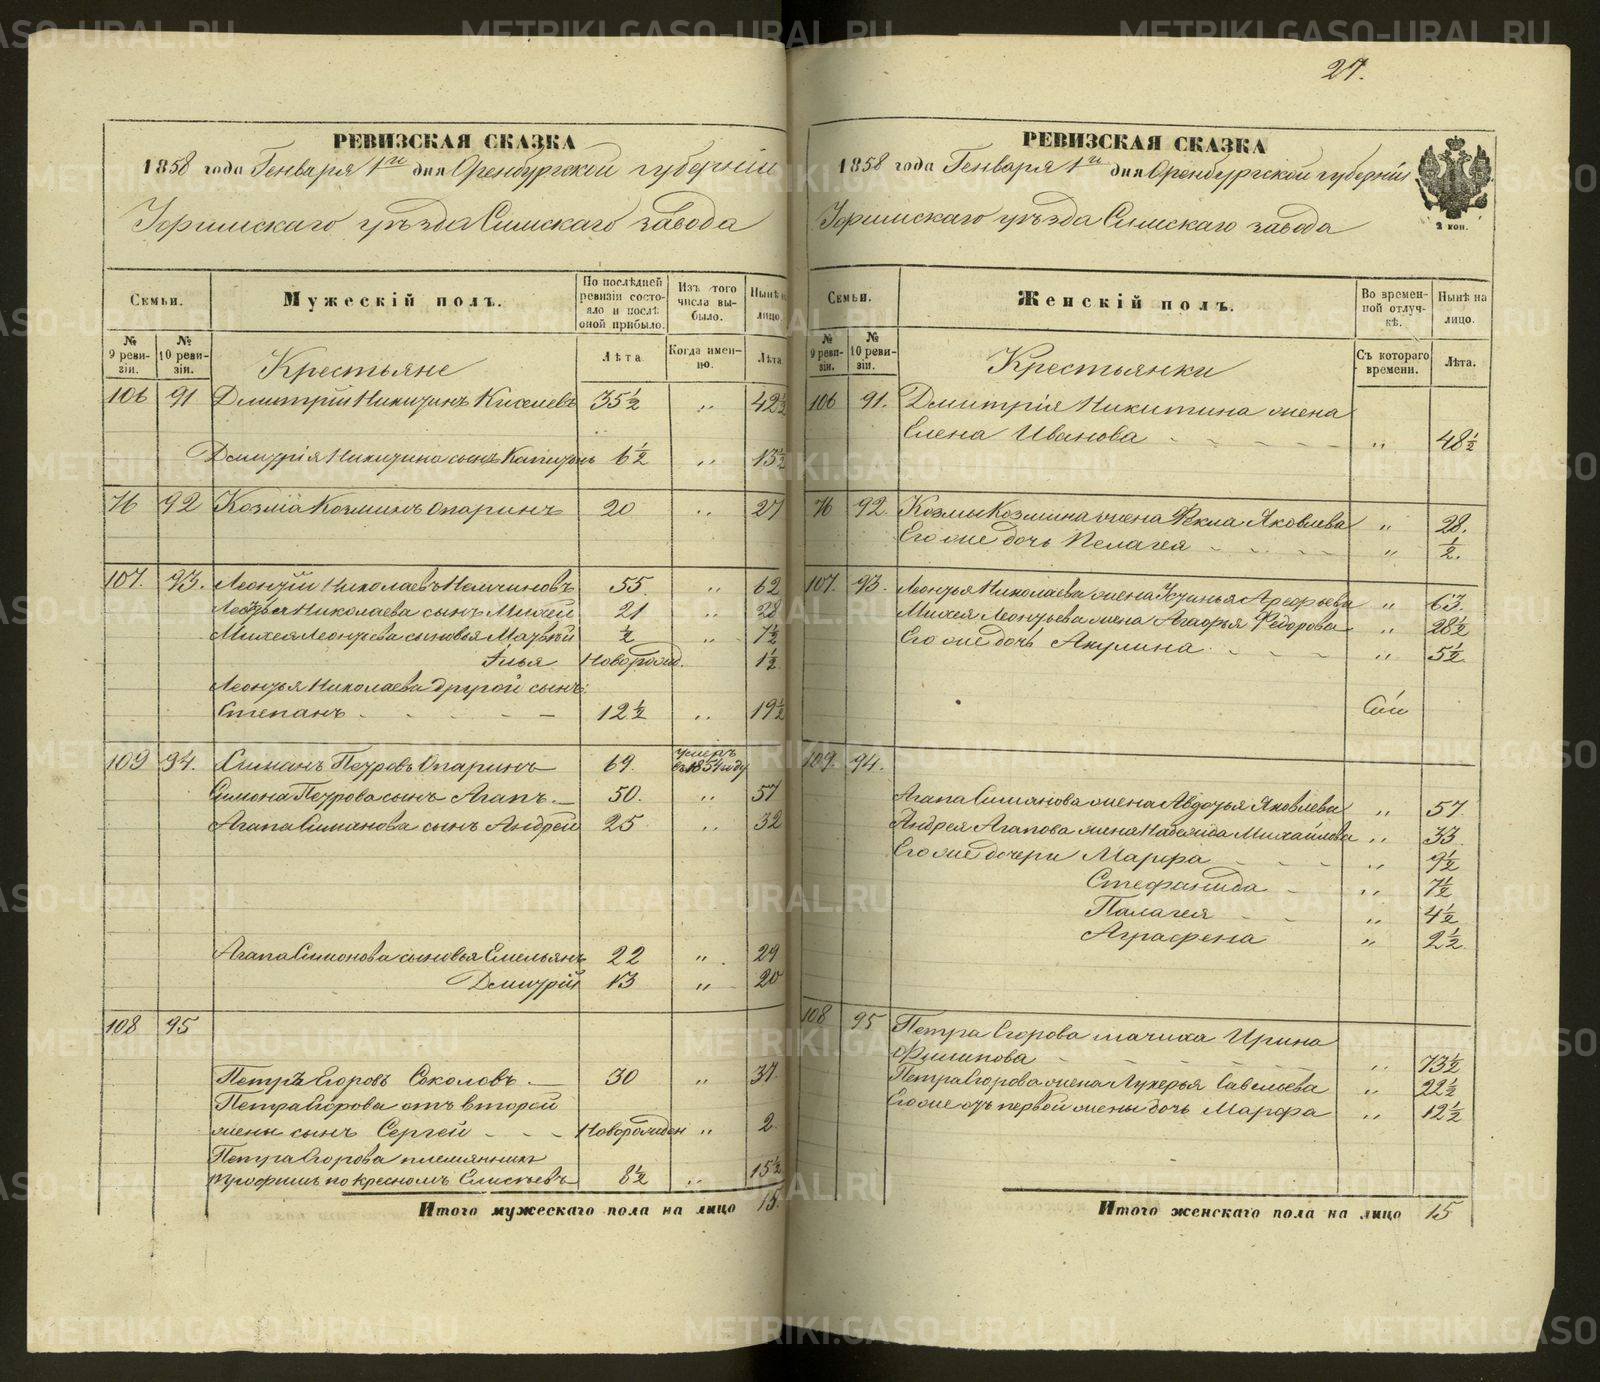 27.
РЕВИЗСКАЯ СКАЗКА
1858 года Генваря 1го дня Оренбургской губернiи
Уфимскаго уѣзда Симскаго завода
Семьи.
Мужескiй полъ.
По послѣдней ревизiи состояло и послѣ оной прибыло.
Изъ того числа выбыло.
Нынѣ на лицо.
№ 9 ревизiи.
№ 10 ревизiи.
Крестьяне
Лѣта
Когда именно.
Лѣта
106 91 Дмитрiй Никитинъ 35½ „ 42½
Дмитрiя Никитина сынъ Капитонъ 6½ „ 13½
76 92 Козма Козминъ Опаринъ 20 „ 27
107. 93. Леонтiй Николаевъ 55. „ 62
Леонтья Николаева сынъ Михей 21 „ 28
Михея Леонтьева сыновья Матвей ½ „ 7½
Илья Новорожд. 1½
Леонтья Николаева другой сынъ
Степанъ - - - - 12½ „ 19½
109 94. Симанъ Петровъ Опаринъ 69. умеръ въ 1851 году
Симона Петрова сынъ Агапъ 50. „ 57
Агапа Симанова сынъ Андрей 25 „ 32
Агапа Симонова сыновья Емельянъ 22 „ 29
Дмитрiй 13 „ 20
108 95
Петръ Егоровъ Соколовъ 30 „ 37.
Петра Егорова отъ второй
жены сынъ Сергей - - - Новорожден „ 2
Петра Егорова племянникъ
Трофимъ по кресномъ Елисеевъ 8½ „ 15½
Итого мужескаго пола на лицо 15.
РЕВИЗСКАЯ СКАЗКА
1858 года Генваря 1го дня Оренбургской губернiи
2 коп.
Уфимскаго уѣзда Симскаго завода
Семьи.
Женскiй полъ.
Во временной отлучкѣ.
Нынѣ на лицо.
№ 9 ревизiи.
№ 10 ревизiи.
Крестьянки
Съ котораго времени.
Лѣта.
106 91. Дмитрiя Никитина жена
Елена Иванова - - - - „ 48½
76 92. Козмы Козмина жена Фекла Яковлева „ 28.
Его же дочь Пелагея - - - „ ½.
107. 93. Леонтья Николаева жена Устинья Арефьева „ 63.
Михея Леонтьева жена Агафья Федорова „ 28½
Его же дочь Акулина - - - „ 5½
109. 94.
Агапа Симанова жена Авдотья Яковлева „ 57.
Андрея Агапова жена Надежда Михайлова „ 33.
Его же дочери Марфа - - - „ 9½
Стефанида - „ 7½
Палагея - - „ 4½
Аграфена „ 2½
108 95 Петра Егорова мачиха Ирина
Филипова - - - - „ 73½
Петра Егорова жена Лукерья Савельева „ 22½
Его же отъ первой жены дочь Марфа „ 12½
Итого женскаго пола на лицо 15
METRIKI.GASO-URAL.RU